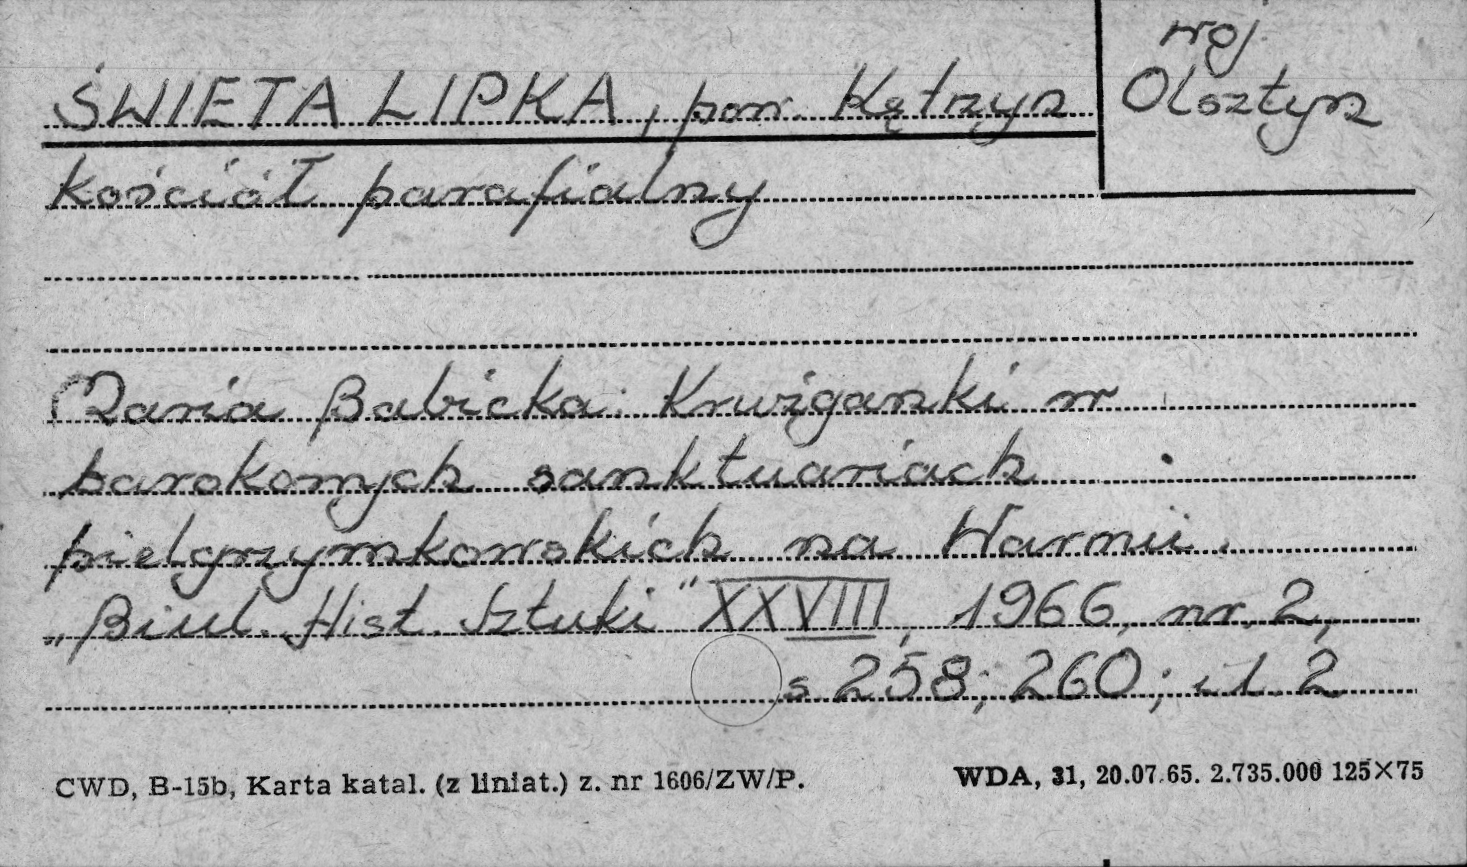 ŚWIETA LIPKA, pow. Kętrzyn
woj.
Olsztyn
kościół parafialny
Maria Babicka: Krużganki w
barokowych sanktuariach
pielgrzymkowskich na Warmii.
„Biul. Hist. Sztuki" XXVIII, 1966, nr. 2,
s 258; 260; il. 2
CWD, B-15b, Karta katal. (z liniat.) z. nr 1606/ZW/P.
WDA, 31, 20.07.65. 2.735.000 125×75